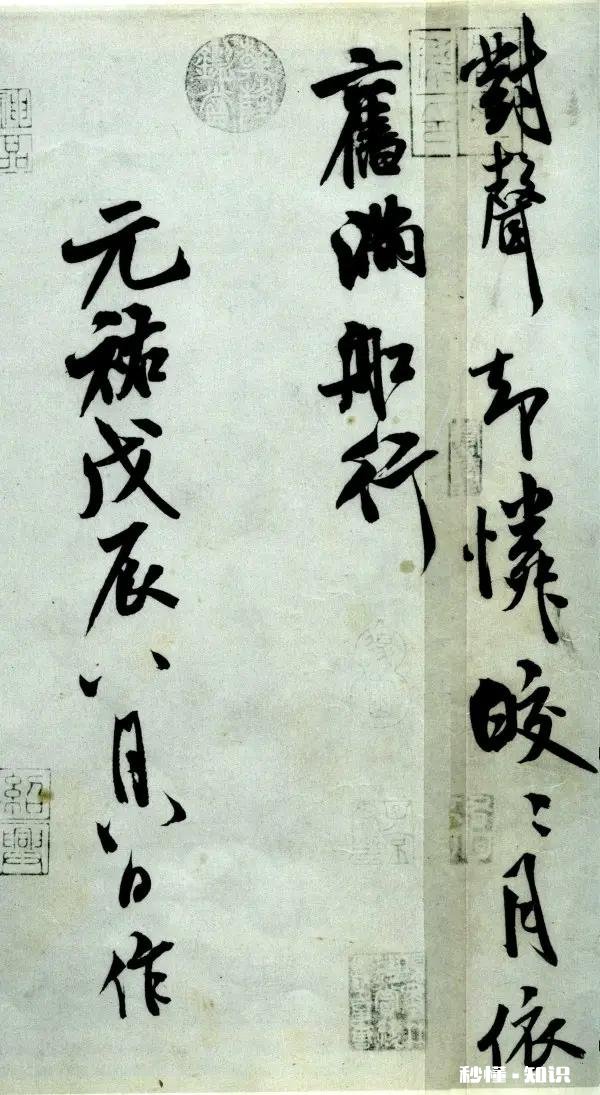 對聲却憐皎〻月依
舊滿船行
元祐戊辰八月八日作
神品
紹興
秒懂·知识